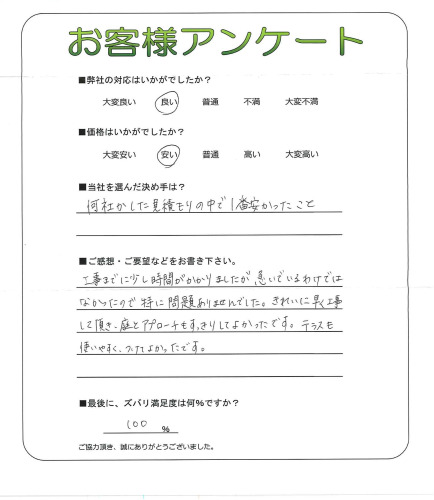 お客様アンケート
■弊社の対応はいかがでしたか？
大変良い 良い 普通 不満 大変不満
■価格はいかがでしたか？
大変安い 安い 普通 高い 大変高い
■当社を選んだ決め手は？
何社かした見積もりの中で1番安かったこと
■ご感想・ご要望などをお書き下さい。
工事までに少し時間がかかりましたが急いでいるわけでは
なかったので特に問題ありませんでした。きれいに工事
して頂き、庭とアプローチもすっきりしてよかったです。テラスも
使いやすく、つけてよかったです。
■最後に、ズバリ満足度は何%ですか？
100 %
ご協力頂き、誠にありがとうございました。